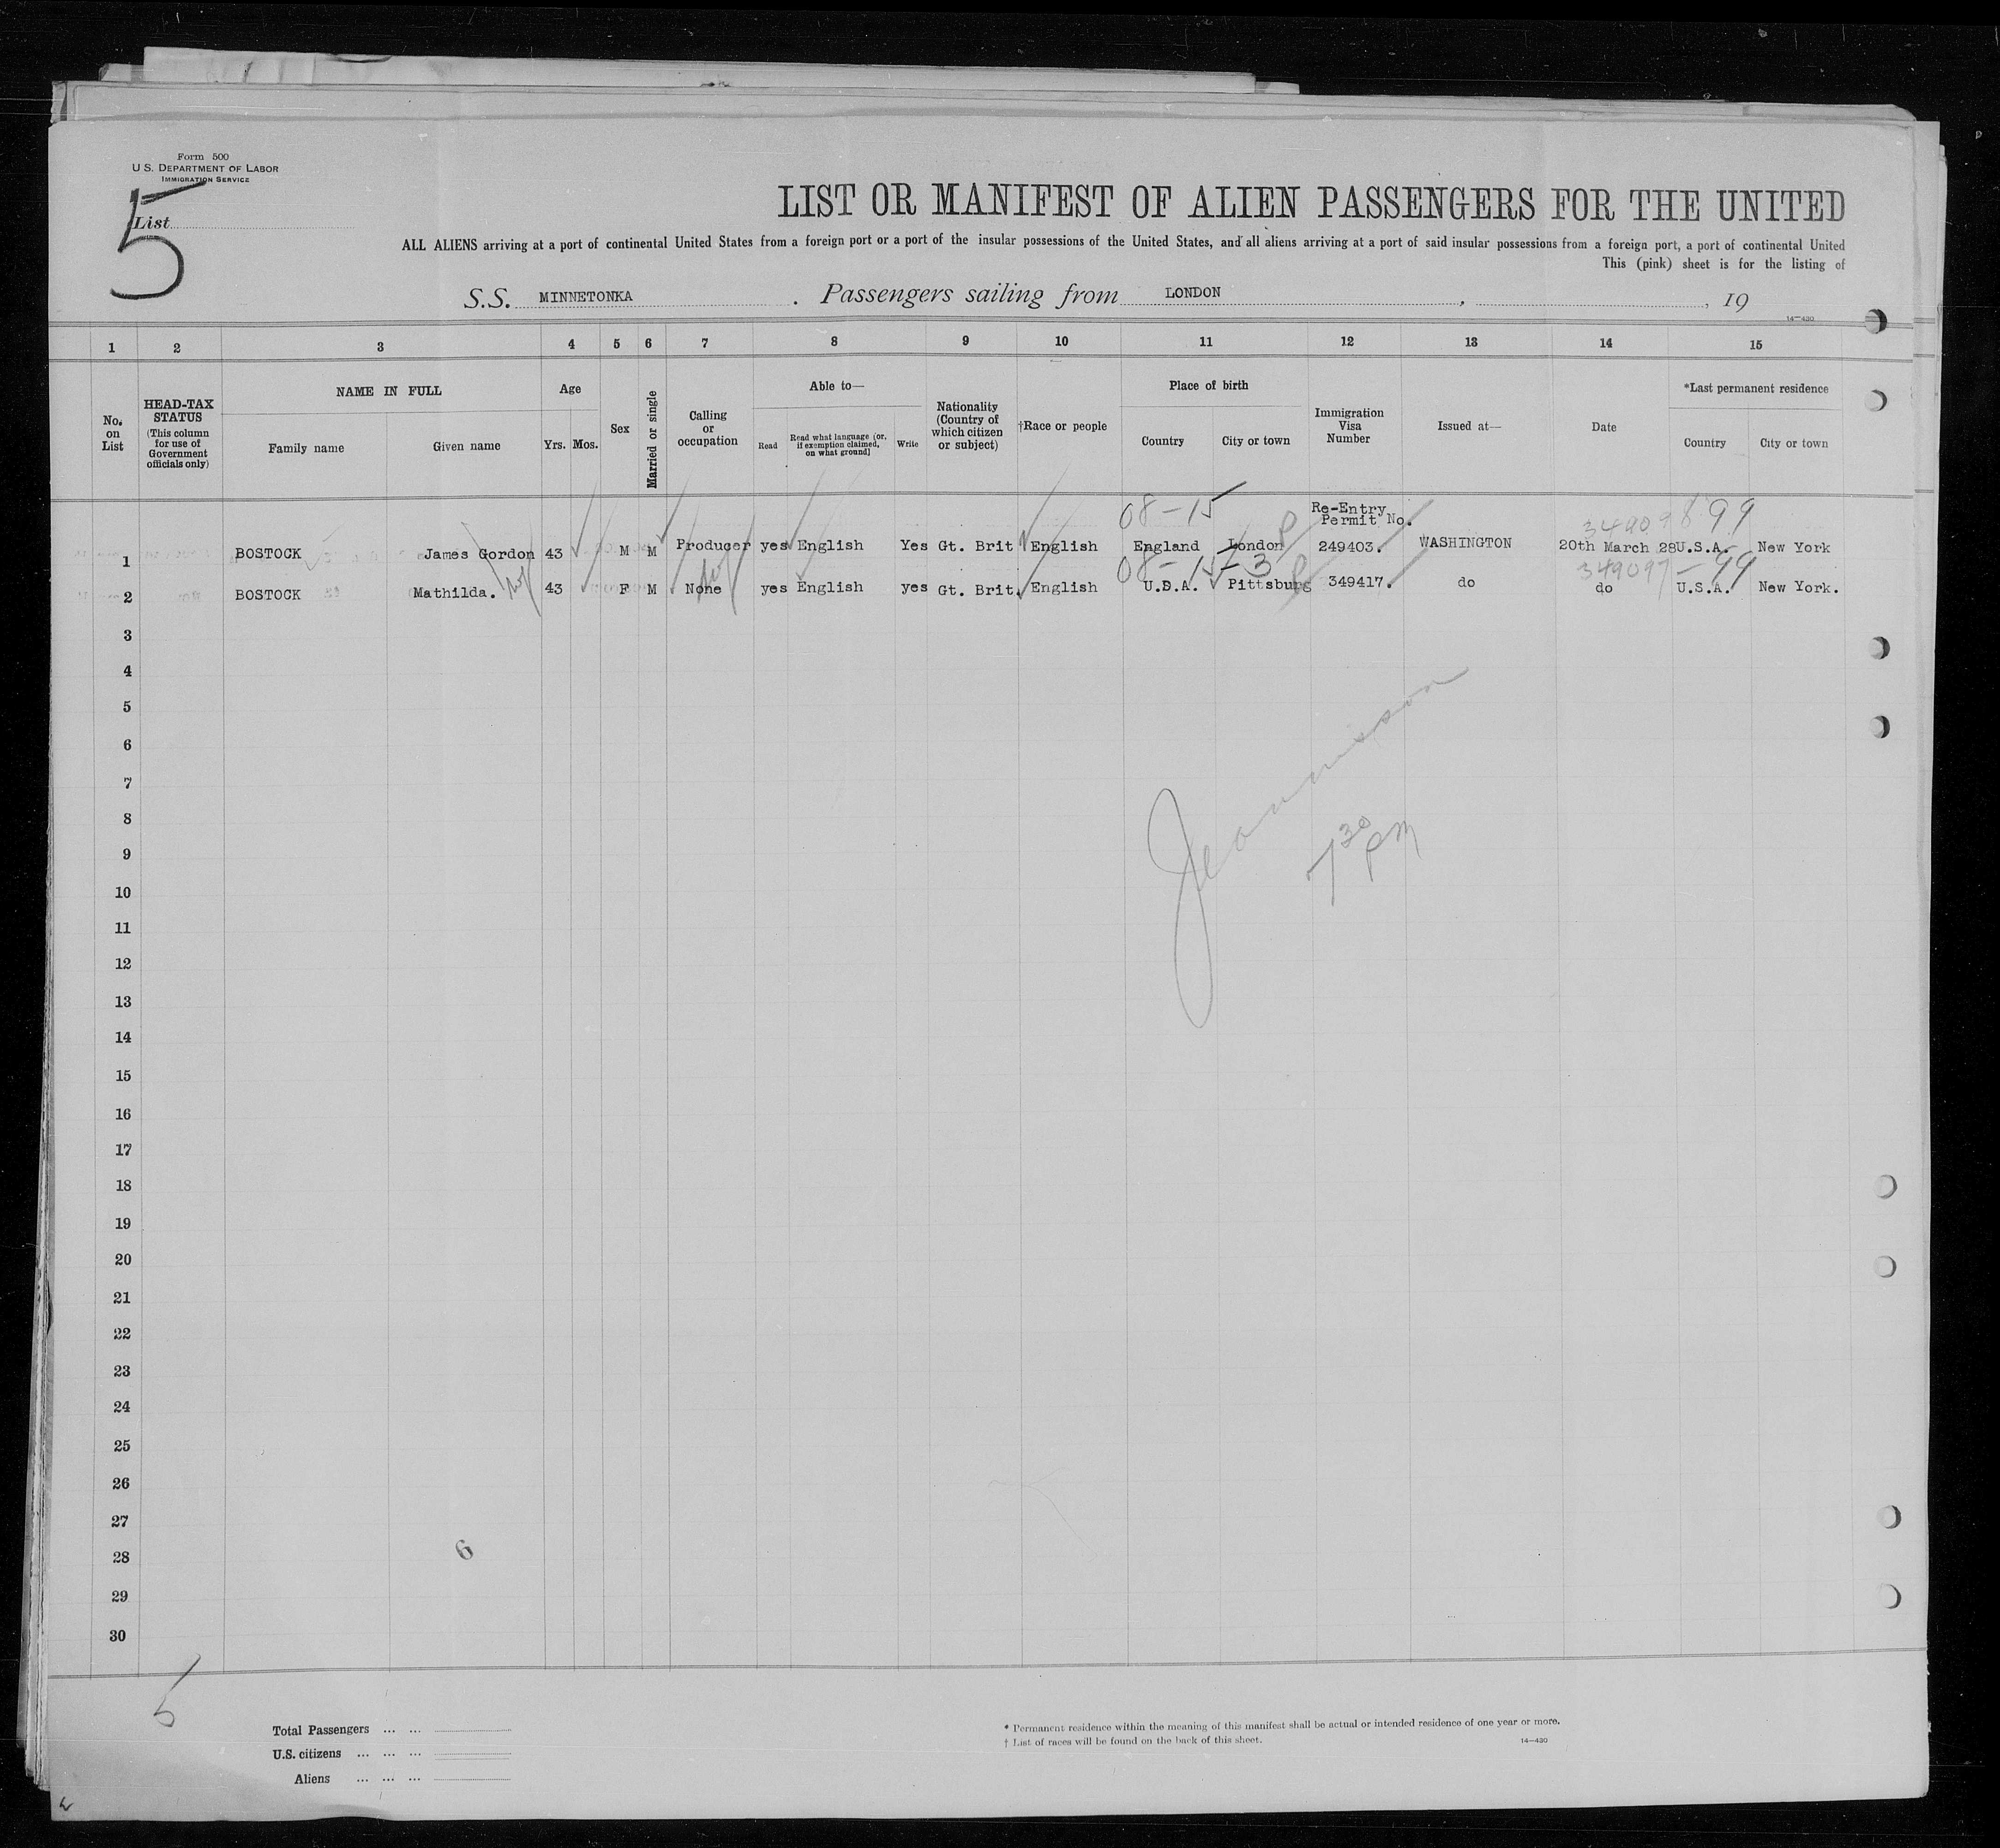 Form 500
U.S. DEPARTMENT OF LABOR
IMMIGRATION SERVICE
List
5
LIST OR MANIFEST OF ALIEN PASSENGERS FOR THE UNITED
ALL ALIENS arriving at a port of continental United States from a foreign port or a port of the insular possessions of the United States, and all aliens arriving at a port of said insular possessions from a foreign port, a port of continental United
This (pink) sheet is for the listing of
S.S. MINNETONKA . Passengers sailing from LONDON , , 19
14—430
1 2 3 4 5 6 7 8 9 10 11 12 13 14 15
No. on List
HEAD-TAX STATUS (This column for use of Government officials only)
NAME IN FULL
Family name Given name
Age
Yrs. Mos.
Sex
Married or single
Calling or occupation
Able to—
Read Read what language (or, if exemption claimed, on what ground) Write
Nationality (Country of which citizen or subject)
†Race or people
Place of birth
Country City or town
Immigration Visa Number
Issued at—
Date
*Last permanent residence
Country City or town
08-15
Re-Entry
Permit No.
99
1 BOSTOCK James Gordon 43 M M Producer yes English Yes Gt. Brit English England London 249403. WASHINGTON 20th March 28 U.S.A. New York
08-15-3 349097-99
2 BOSTOCK Mathilda. 43 F M None yes English yes Gt. Brit. English U.S.A. Pittsburg 349417. do do U.S.A. New York.
3
4
5
6
7
8
9
10
11
12
13
14
15
16
17
18
19
20
21
22
23
24
25
26
27
28
29
30
7 30 pm
6
5
Total Passengers ... ...
U.S. citizens ... ... ...
Aliens ... ... ...
* Permanent residence within the meaning of this manifest shall be actual or intended residence of one year or more.
† List of races will be found on the back of this sheet.
14—430